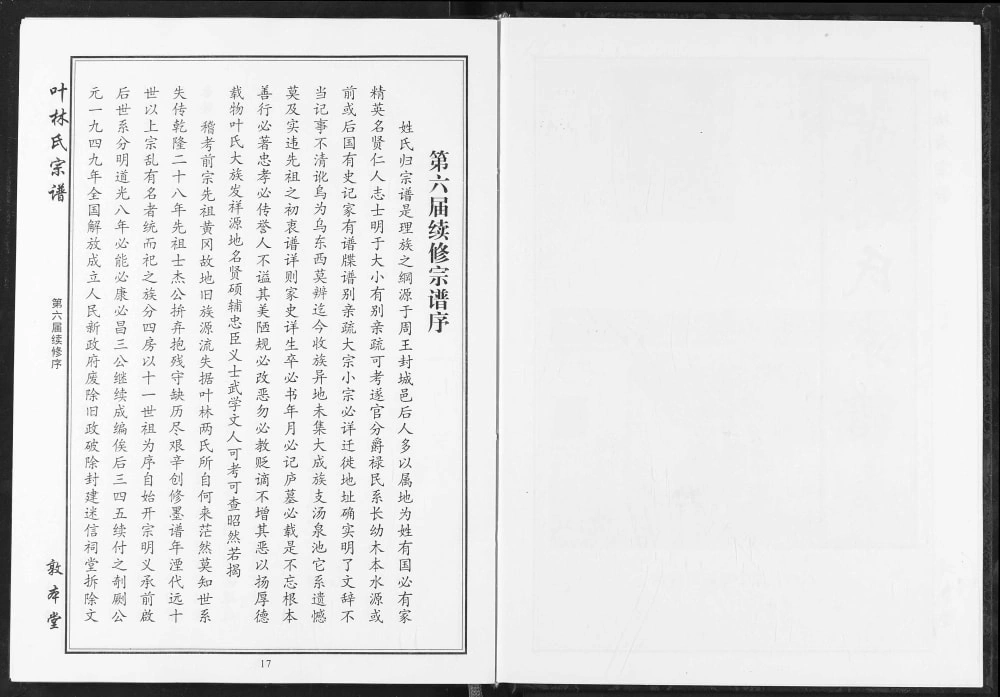 第六届续修宗谱序
姓氏归宗谱是理族之綱源于周王封城邑后人多以属地为姓有国必有家
精英名贤仁人志士明于大小有别亲疏可考遂官分爵禄民系长幼木本水源或
前或后国有史记家有谱牒谱别亲疏大宗小宗必详迁徙地址确实明了文辞不
当记事不清讹鸟为乌东西莫辨迄今收族异地未集大成族支汤泉池它系遗憾
莫及实违先祖之初衷谱详则家史详生卒必书年月必记庐墓必载是不忘根本
善行必著忠孝必传誉人不谥其美陋规必改恶勿必教贬谪不增其恶以扬厚德
载物叶氏大族发祥源地名贤硕辅忠臣义士武学文人可考可查昭然若揭
稽考前宗先祖黄冈故地旧族源流失据叶林两氏所自何来茫然莫知世系
失传乾隆二十八年先祖士杰公拚弃抱残守缺历尽艰辛创修墨谱年湮代远十
世以上宗乱有名者统而祀之族分四房以十一世祖为序自始开宗明义承前啟
后世系分明道光八年必能必康必昌三公继续成编俟后三四五续付之剞劂公
元一九四九年全国解放成立人民新政府废除旧政破除封建迷信祠堂拆除文
叶林氏宗谱
第六届续修序
敦本堂
17